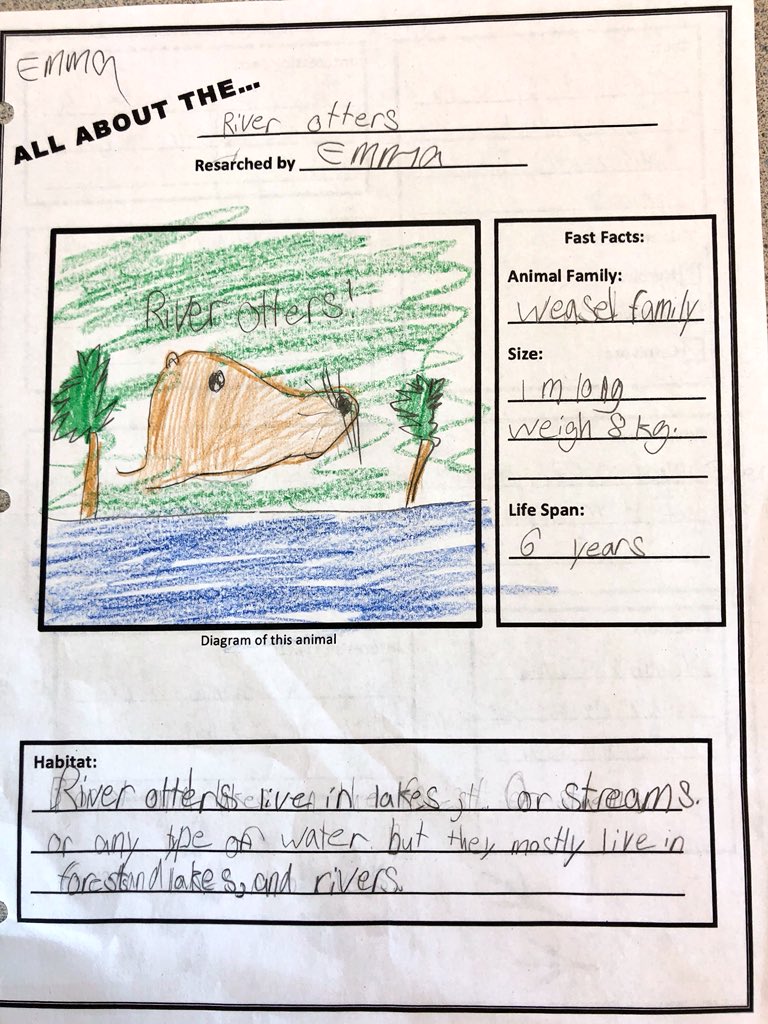 Emma
ALL ABOUT THE...
River otters
Resarched by Emma
River otters!
Fast Facts:
Animal Family:
Weasel family
Size:
1 m long
weigh 8 kg.
Life Span:
6 years
Diagram of this animal
Habitat:
River otters live in lakes or streams.
or any type of water but they mostly live in
forestand lakes, and rivers.